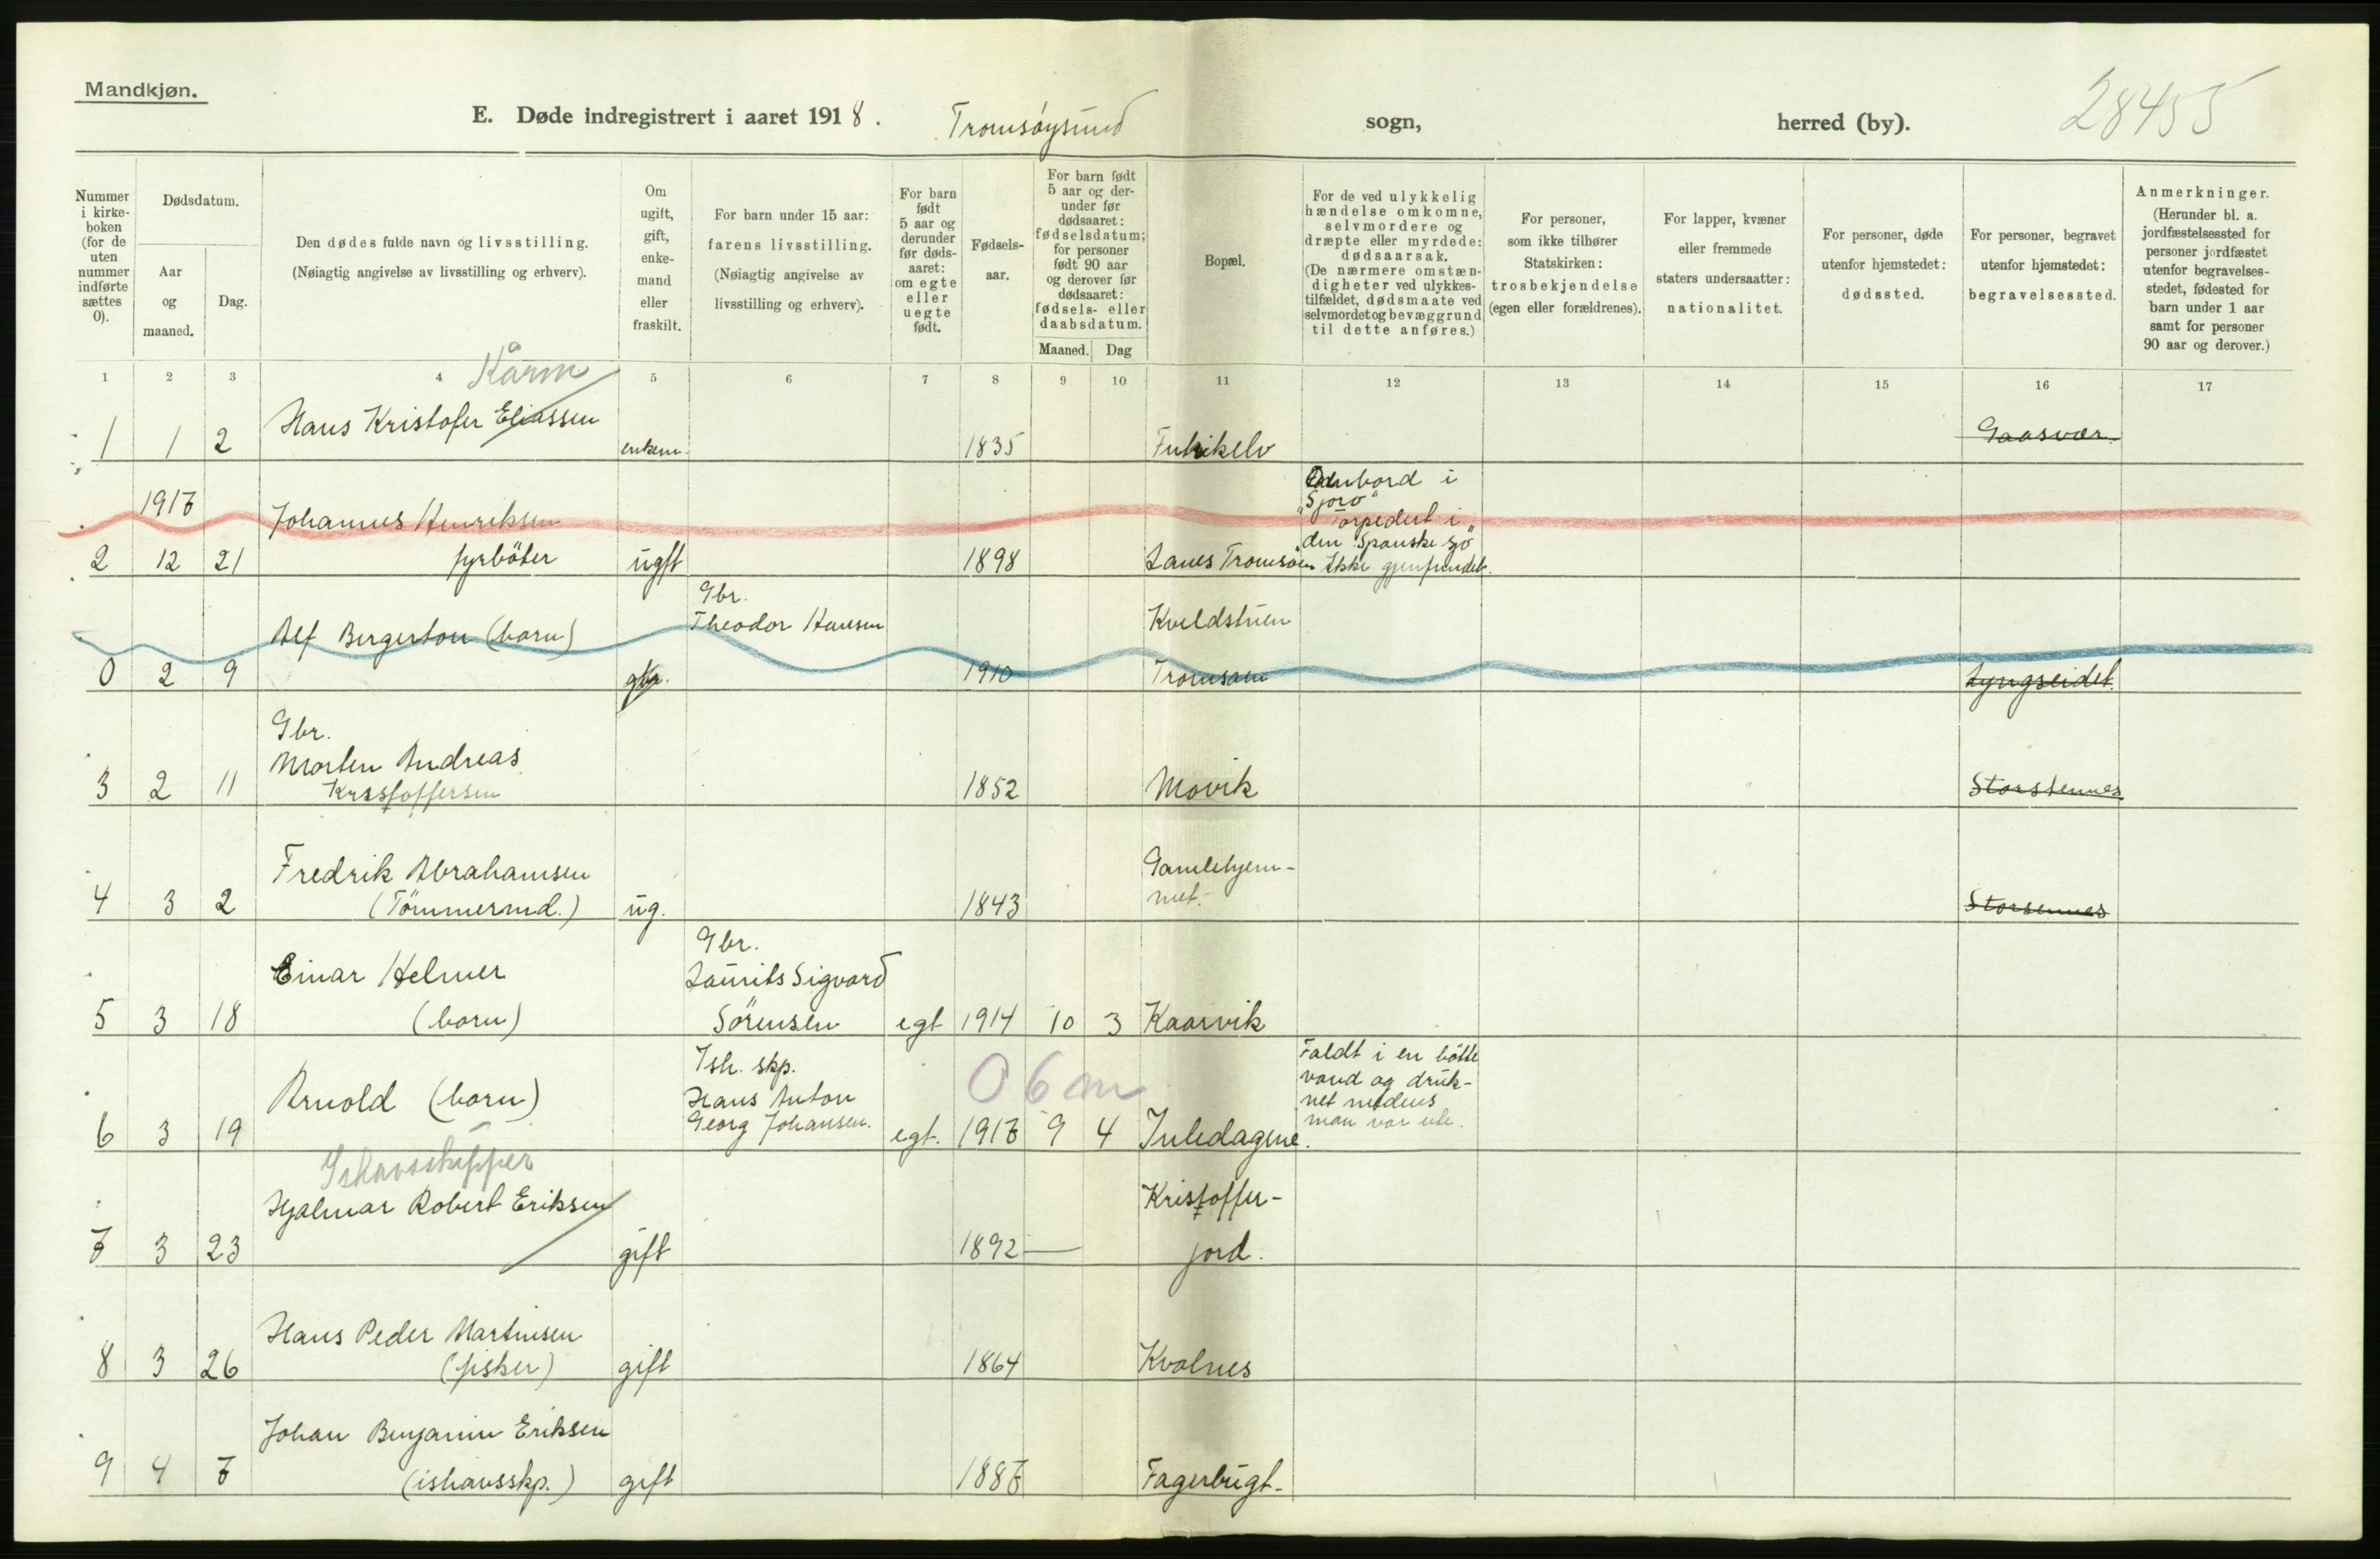 Mandkjøn.
E. Døde indregistrert i aaret 1918. Tromsøysund sogn, herred (by). 28455
Nummer i kirke-boken (for de uten nummer indførte sættes 0).
Dødsdatum.
Aar og maaned.
Dag.
Den dødes fulde navn og livsstilling.
(Nøiagtig angivelse av livsstilling og erhverv).
Om ugift, gift, enke-mand eller fraskilt.
For barn under 15 aar: farens livsstilling.
(Nøiagtig angivelse av livsstilling og erhverv).
For barn født 5 aar og derunder før døds-aaret: om egte eller uegte født.
Fødsels-aar.
For barn født 5 aar og der-under før dødsaaret: fødselsdatum; for personer født 90 aar og derover før dødsaaret: fødsels- eller daabsdatum.
Maaned. Dag
Bopæl.
For de ved ulykkelig hændelse omkomne, selvmordere og dræpte eller myrdede: dødsaarsak.
(De nærmere omstæn-digheter ved ulykkes-tilfældet, dødsmaate ved selvmordet og bevæggrund til dette anføres.)
For personer, som ikke tilhører Statskirken: trosbekjendelse (egen eller forældrenes).
For lapper, kvæner eller fremmede staters undersaatter: nationalitet.
For personer, døde utenfor hjemstedet: dødssted.
For personer, begravet utenfor hjemstedet: begravelsessted.
Anmerkninger.
(Herunder bl. a. jordfæstelsessted for personer jordfæstet utenfor begravelses-stedet, fødested for barn under 1 aar samt for personer 90 aar og derover.)
1 2 3 4 5 6 7 8 9 10 11 12 13 14 15 16 17
Kårm
Hans Kristofer Eliassen
1 1 2 enkem. 1835 Gaasvær
1917 Johannes Henriksen
Ombord i
"Sjorø"
Torpedert i
"den Spanske sjø"
2 12 21 fyrbøter ugft 1898 Lanes Tromsøen Ikke gjenfundet.
Gbr.
Alf Bergerton (barn) Theodor Hansen Kveldstuen
0 2 9 gbr. 1910 Tromsøen Lyngseidet
Gbr.
Morten Andreas
3 2 11 Kristoffersen 1852 Movik Storstennes
Fredrik Abrahamsen Gamlehjem-
4 3 2 (Tömmermd.) ug. 1843 met. Storsennes
Gbr.
Einar Helmer Laurits Sigvard
5 3 18 (barn) Sörensen egt 1914 10 3 Kaarvik
Ish. skp. 0 6 m Faldt i en bötte
Arnold (barn) Hans Anton vand og druk-
net medens
6 3 19 Georg Johansen. egt. 1917 9 4 Juledagene. man var ute.
Ishavsskipper
Hjalmar Robert Eriksen Kristoffer-
7 3 23 gift 1892 — jord.
Hans Peder Martinsen
8 3 26 (fisker) gift 1864 Kvalnes
Johan Benjamin Eriksen
9 4 7 (ishavsskp.) gift 1887 Fagerbugt.